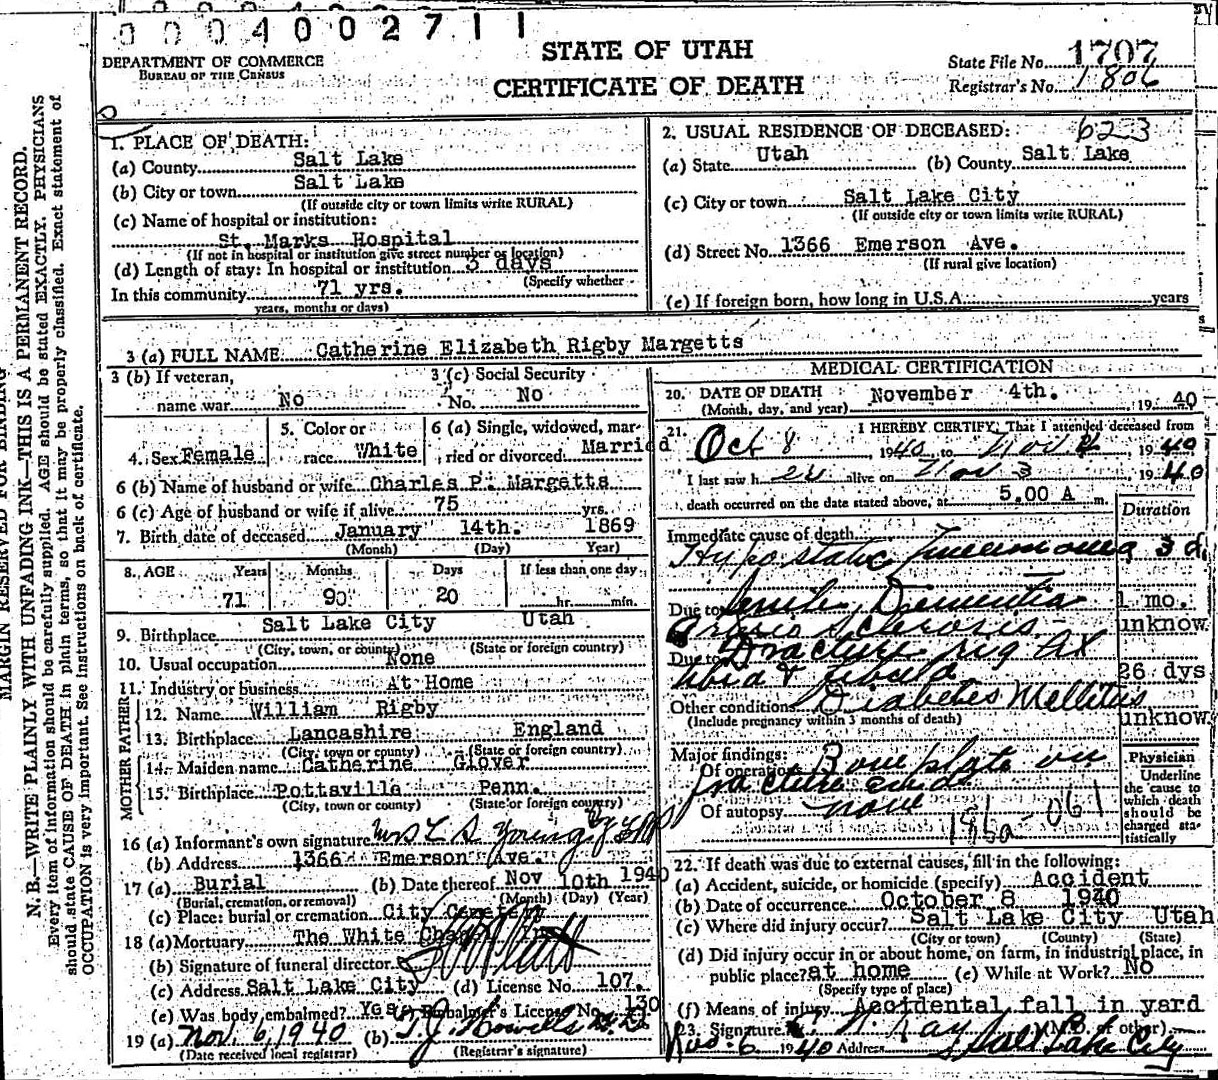 0004002711
DEPARTMENT OF COMMERCE
BUREAU OF THE CENSUS
STATE OF UTAH
CERTIFICATE OF DEATH
State File No. 1707
Registrar's No. 1806
MARGIN RESERVED FOR BINDING
N. B.—WRITE PLAINLY WITH UNFADING INK—THIS IS A PERMANENT RECORD.
Every item of information should be carefully supplied. AGE should be stated EXACTLY. PHYSICIANS
should state CAUSE OF DEATH in plain terms, so that it may be properly classified. Exact statement of
OCCUPATION is very important. See instructions on back of certificate.
1. PLACE OF DEATH:
(a) County Salt Lake
(b) City or town Salt Lake
(If outside city or town limits write RURAL)
(c) Name of hospital or institution:
St. Marks Hospital
(If not in hospital or institution give street number or location)
(d) Length of stay: In hospital or institution 3 days
(Specify whether
In this community 71 yrs.
years, months or days)
2. USUAL RESIDENCE OF DECEASED: 623
(a) State Utah (b) County Salt Lake
(c) City or town Salt Lake City
(If outside city or town limits write RURAL)
(d) Street No. 1366 Emerson Ave.
(If rural give location)
(e) If foreign born, how long in U.S.A. years
3 (a) FULL NAME Catherine Elizabeth Rigby Margetts
3 (b) If veteran,
name war No
3 (c) Social Security
No. No
4. Sex Female
5. Color or
race White
6 (a) Single, widowed, mar-
ried or divorced Married
6 (b) Name of husband or wife Charles P. Margetts
6 (c) Age of husband or wife if alive 75 yrs.
7. Birth date of deceased January 14th. 1869
(Month) (Day) Year)
8. AGE Years Months Days If less than one day
71 90 20 hr. min.
9. Birthplace Salt Lake City Utah
(City, town, or county) (State or foreign country)
10. Usual occupation None
11. Industry or business At Home
FATHER
12. Name William Rigby
13. Birthplace Lancashire England
(City, town or county) (State or foreign country)
MOTHER
14. Maiden name Catherine Glover
15. Birthplace Pottsville Penn.
(City, town or county) (State or foreign country)
16 (a) Informant's own signature Mrs L S Young by
(b) Address 1366 Emerson Ave.
17 (a) Burial (b) Date thereof Nov 10th 1940
(Burial, cremation, or removal) (Month) (Day) (Year)
(c) Place: burial or cremation City Cemetery
18 (a) Mortuary The White Chapel
(b) Signature of funeral director
(c) Address Salt Lake City (d) License No. 107.
(e) Was body embalmed? Yes Embalmer's License No. 130
19 (a) Nov. 6, 1940 (b) T. J. Howells
(Date received local registrar) (Registrar's signature)
MEDICAL CERTIFICATION
20. DATE OF DEATH November 4th. 1940
(Month, day, and year)
21. I HEREBY CERTIFY, That I attended deceased from
Oct 8, 1940, to Nov 4, 1940
I last saw her alive on Nov 3 1940
death occurred on the date stated above, at 5.00 A m.
Duration
Immediate cause of death
Hypostatic Pneumonia 3 d.
Due to Senile Dementia 1 mo.
Arterio Sclerosis unknow.
Due to Fracture leg
tibia & fibula 26 dys
Other conditions Diabetes Mellitus
(Include pregnancy within 3 months of death) unknow.
Major findings:
Of operation Bone plate on
fracture ends
Of autopsy none
186a-061
Physician
Underline
the cause to
which death
should be
charged sta-
tistically
22. If death was due to external causes, fill in the following:
(a) Accident, suicide, or homicide (specify) Accident
(b) Date of occurrence October 8 1940
(c) Where did injury occur? Salt Lake City Utah
(City or town) (County) (State)
(d) Did injury occur in or about home, on farm, in industrial place, in
public place? at home (e) While at Work? No
(Specify type of place)
(f) Means of injury Accidental fall in yard
23. Signature Ray (M.D. or other)
Nov. 6 1940 Address Salt Lake City